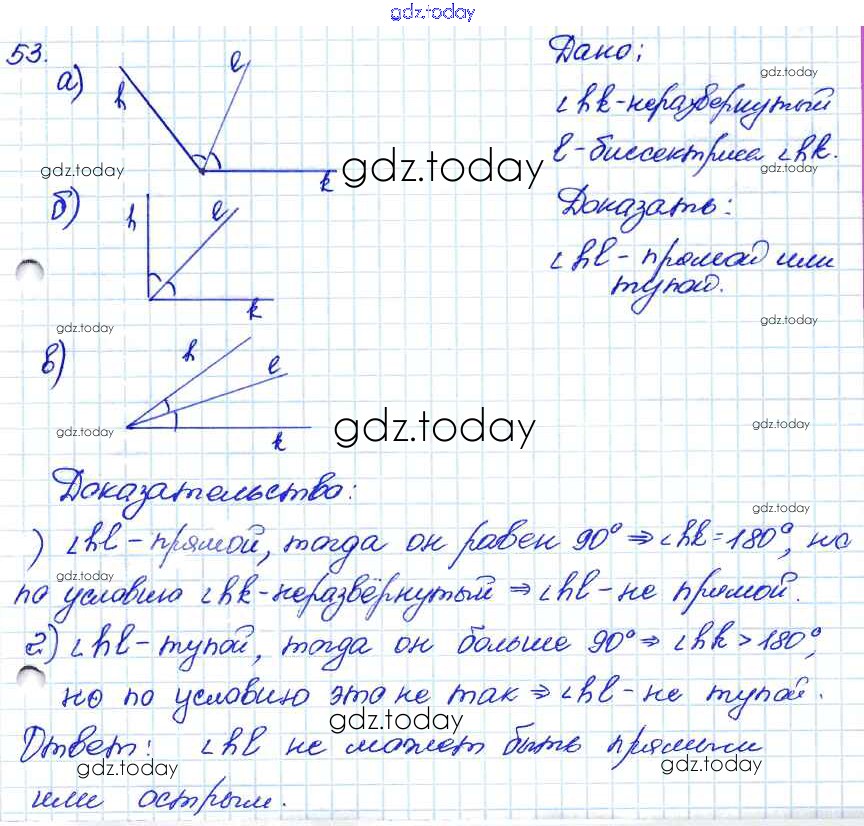 gdz.today
53.
а)
h
l
k
Дано:
gdz.today
∠hk - неразвернутый
l - биссектриса ∠hk.
gdz.today
gdz.today
gdz.today
б)
h
l
k
Доказать:
∠hl - прямой или
тупой.
gdz.today
gdz.today
в)
h
l
k
gdz.today
gdz.today
gdz.today
Доказательство:
gdz.today
) ∠hl - прямой, тогда он равен 90° ⇒ ∠hk = 180°, но
gdz.today
по условию ∠hk - неразвёрнутый ⇒ ∠hl - не прямой.
2) ∠hl - тупой, тогда он больше 90° ⇒ ∠hk > 180°,
но по условию это не так ⇒ ∠hl - не тупой.
gdz.today
Ответ: ∠hl не может быть прямым
gdz.today
gdz.today
или острым.